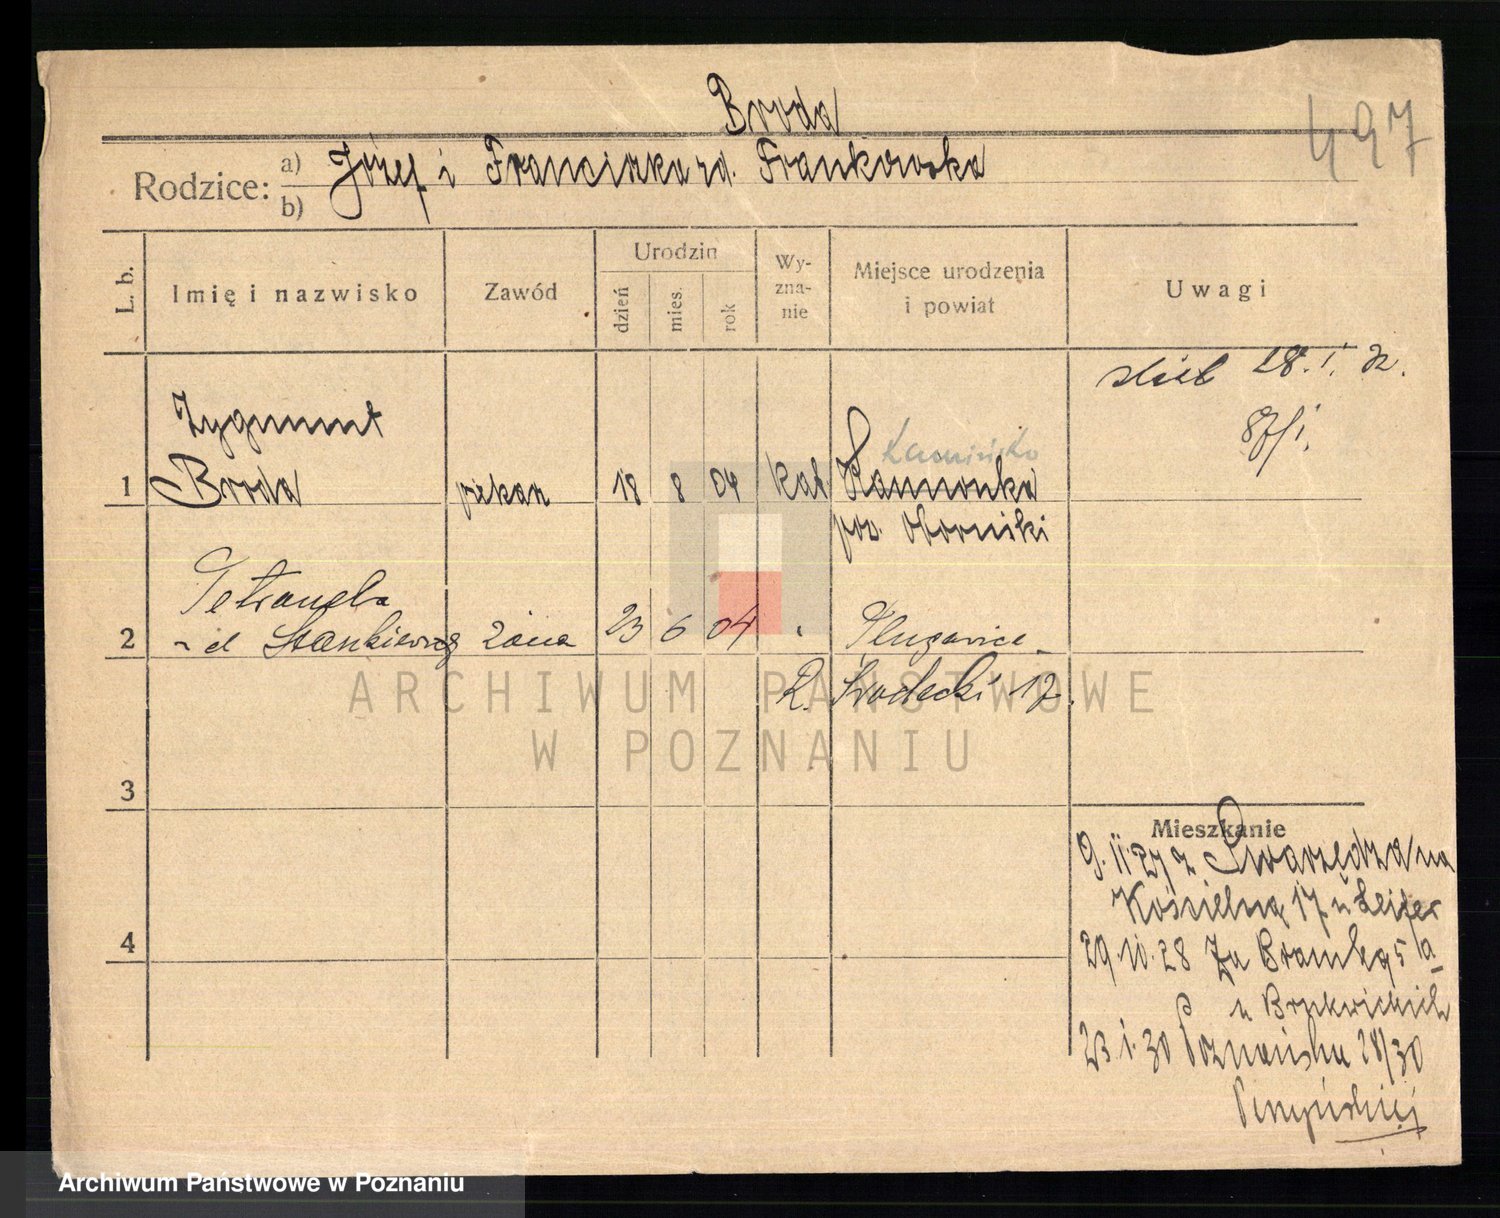 Broda
497
Rodzice: a) Józef i Franciszka rd. Frankowska
b)
L. b.
Imię i nazwisko
Zawód
Urodzin
dzień
mies.
rok
Wy-
zna-
nie
Miejsce urodzenia
i powiat
Uwagi
ślub 28. I. 32.
87/I.
Zygmunt
Kamińsko
1 Broda piekarz 18 8 04 kat. Kamionka
pow. Oborniki
Petronela
2 Stankiewicz żona 23 6 04
R. Środecki 17.
ARCHIWUM PAŃSTWOWE
W POZNANIU
3
Mieszkanie
9.II.27 z Swarzędza na
Kościelną 17 u
4
29.10.28 Za Bramką 5a
u
23.I.30 Poznańska 28/30
Archiwum Państwowe w Poznaniu